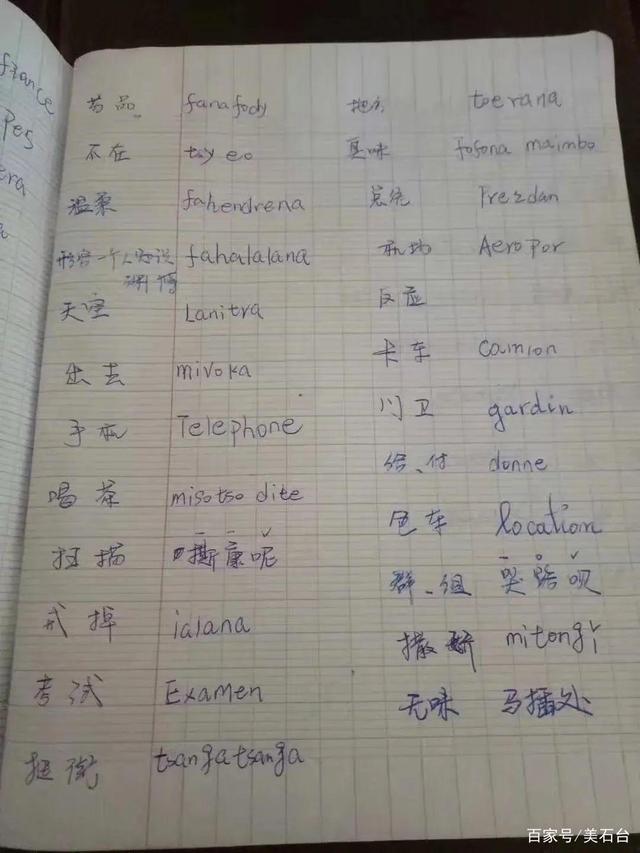 france
Pes
era
药品 fanafody
不在 tsy eo
温柔 fahendrena
形容一个人会说 fahalalana
天空 Lanitra
出去 mivoka
手机 Telephone
喝茶 misotso dite
扫描 嘶康呢
戒掉 ialana
考试 Examen
tsangatsanga
地方 toerana
臭味 fofona maimbo
总统 Prezdan
机场 Aeropor
反应
卡车 camion
门卫 gardin
给、付 donne
包车 location
群、组 哭路呗
撒娇 mitongi
无味 马播处
百家号/美石台